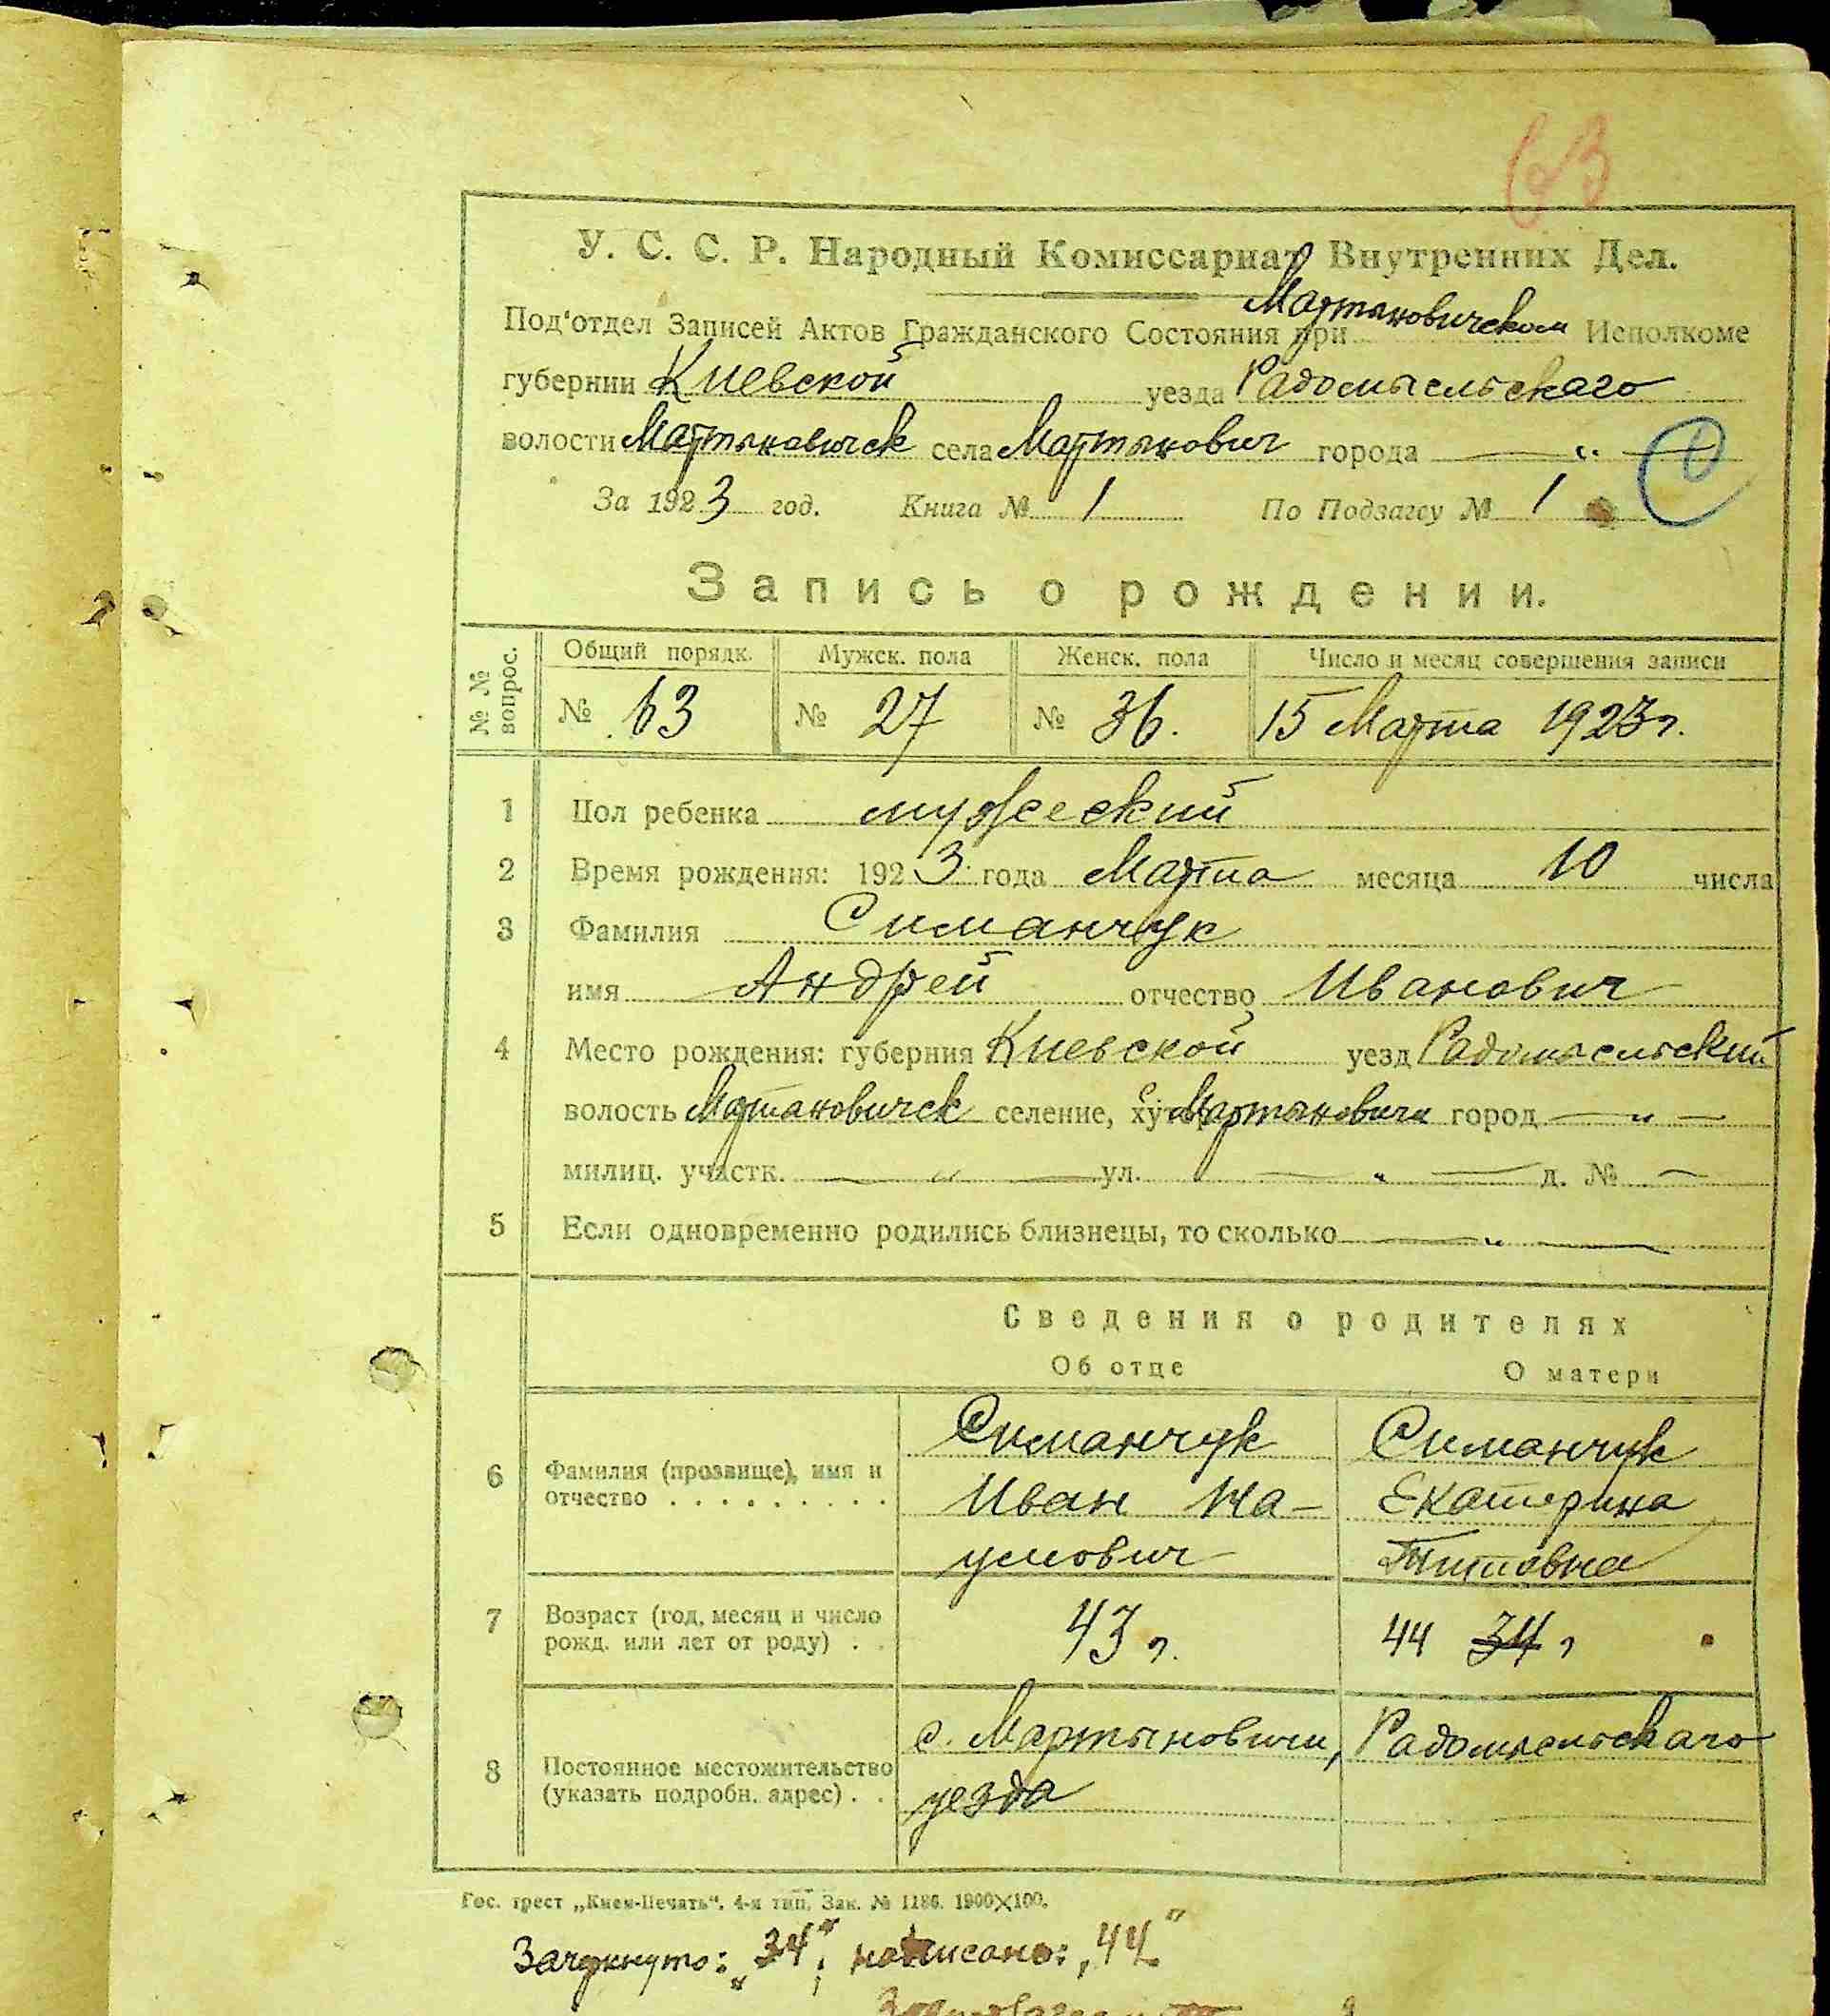 63
У. С. С. Р. Народный Комиссариат Внутренних Дел.
Под'отдел Записей Актов Гражданского Состояния при Мартыновическом Исполкоме
губернии Киевской уезда Радомысльскаго
волости Мартыновическ села Мартынович города — „ —
За 1923 год. Книга № 1 По Подзагсу № 1
Запись о рождении.
№ № вопрос.
Общий порядк. Мужск. пола Женск. пола Число и месяц совершения записи
№ 63 № 27 № 36. 15 Марта 1923 г.
1 Пол ребенка мужеский
2 Время рождения: 1923 года Марта месяца 10 числа
3 Фамилия Симанчук
имя Андрей отчество Иванович
4 Место рождения: губерния Киевской уезд Радомысльский
волость Мартановическ селение, хутор с. Мартыновичи город — „ —
милиц. участк. — „ — ул. — „ — д. № —
5 Если одновременно родились близнецы, то сколько — „ —
Сведения о родителях
Об отце О матери
6 Фамилия (прозвище), имя и отчество . . . . . . . . . .
Симанчук Симанчук
Иван На- Екатерина
умович Титовна
7 Возраст (год, месяц и число рожд. или лет от роду) . .
43 г. 44 34 г
8 Постоянное местожительство (указать подробн. адрес) . .
с. Мартыновичи, Радомысльскаго
уезда
Гос. трест „Киев-Печать“. 4-я тип. Зак. № 1186. 1900×100.
Зачеркнуто: „34“; написано: „44“